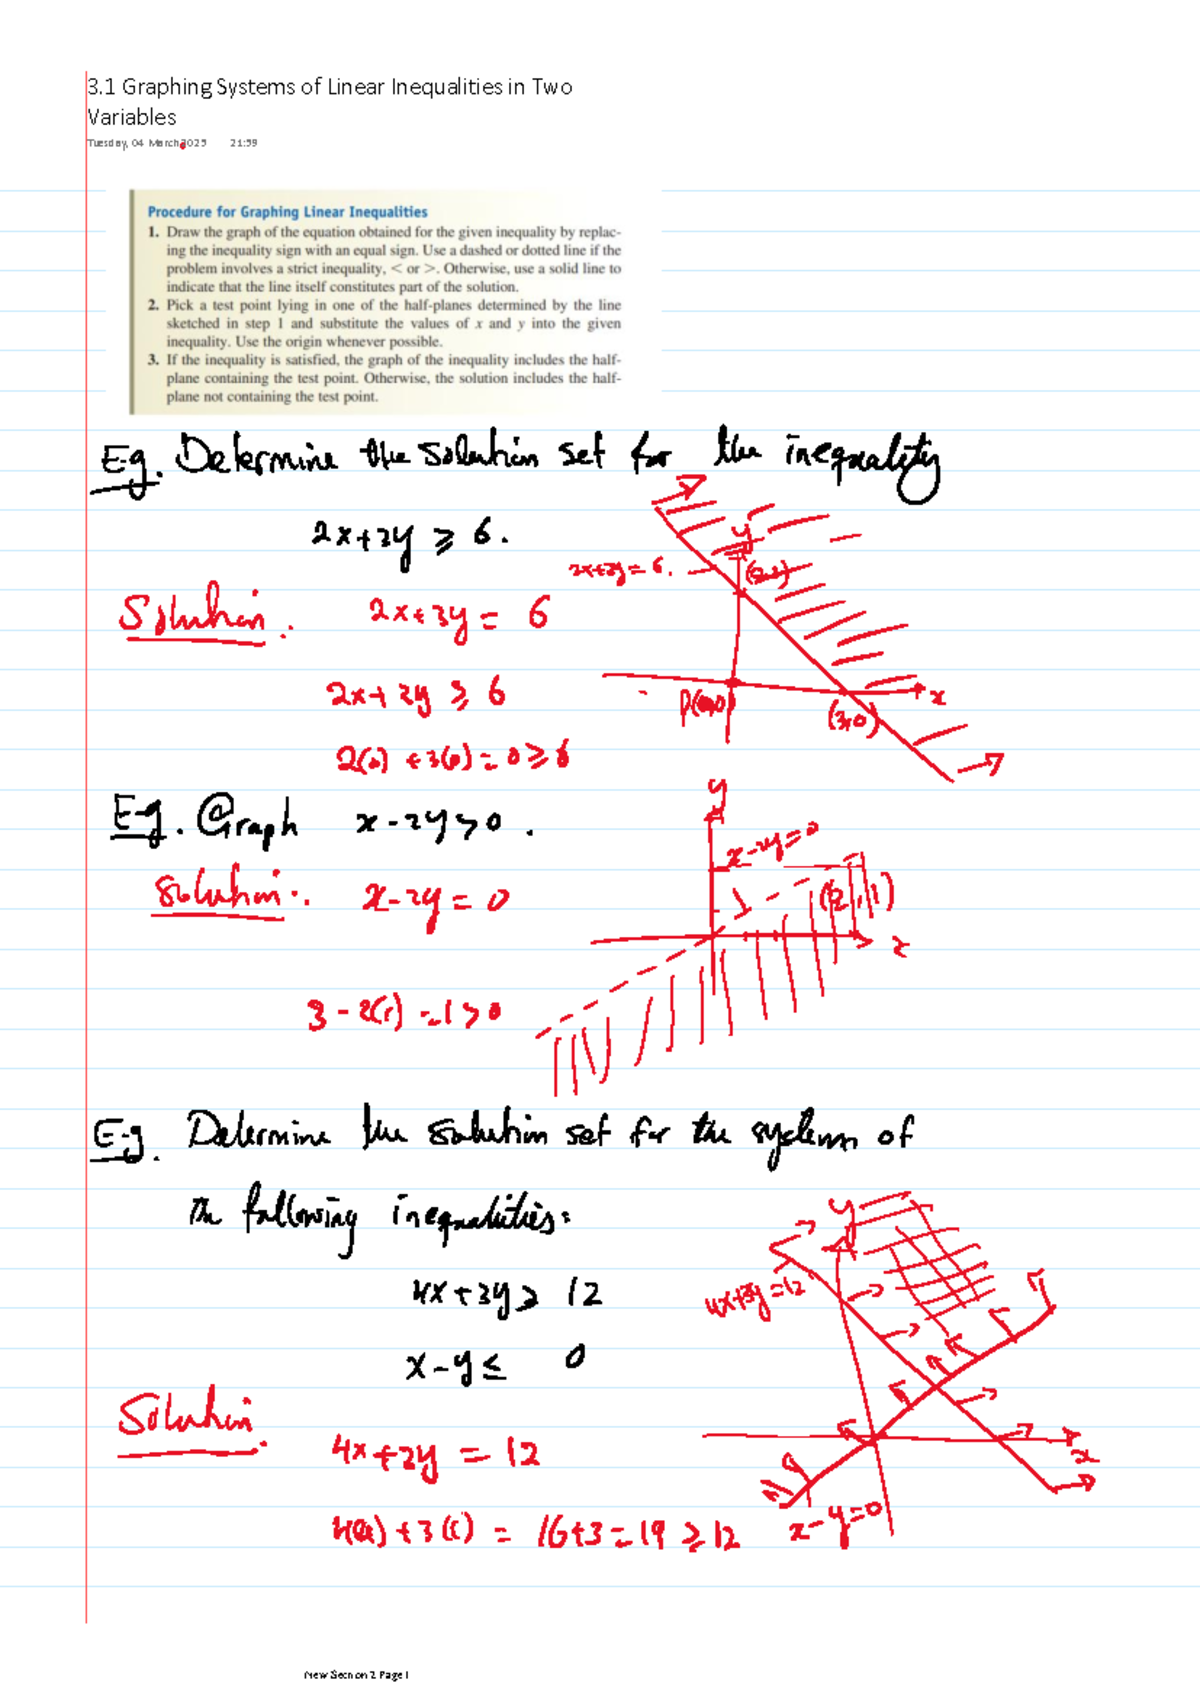 3.1 Graphing Systems of Linear Inequalities in Two
Variables
Tuesday, 04 March 2025 21:59
Procedure for Graphing Linear Inequalities
1. Draw the graph of the equation obtained for the given inequality by replac-
ing the inequality sign with an equal sign. Use a dashed or dotted line if the
problem involves a strict inequality, < or >. Otherwise, use a solid line to
indicate that the line itself constitutes part of the solution.
2. Pick a test point lying in one of the half-planes determined by the line
sketched in step 1 and substitute the values of x and y into the given
inequality. Use the origin whenever possible.
3. If the inequality is satisfied, the graph of the inequality includes the half-
plane containing the test point. Otherwise, the solution includes the half-
plane not containing the test point.
E.g. Determine the solution set for the inequality
2x+3y ≥ 6.
y
2x+3y = 6.
Solution.
2x+3y = 6
2x+3y ≥ 6
x
P(0,0)
(3,0)
2(0) + 3(0) = 0 ≥ 6
y
E.g. Graph x-2y>0.
x-2y=0
Solution:.
x-2y = 0
1
(2,1)
x
3-2(1) = 1 > 0
E.g. Determine the solution set for the system of
the following inequalities:
y
4x+3y ≥ 12
4x+3y=12
x-y ≤ 0
Solution.
4x+3y = 12
x
x-y=0
4(4) + 3(1) = 16+3 = 19 ≥ 12
New Section 2 Page 1